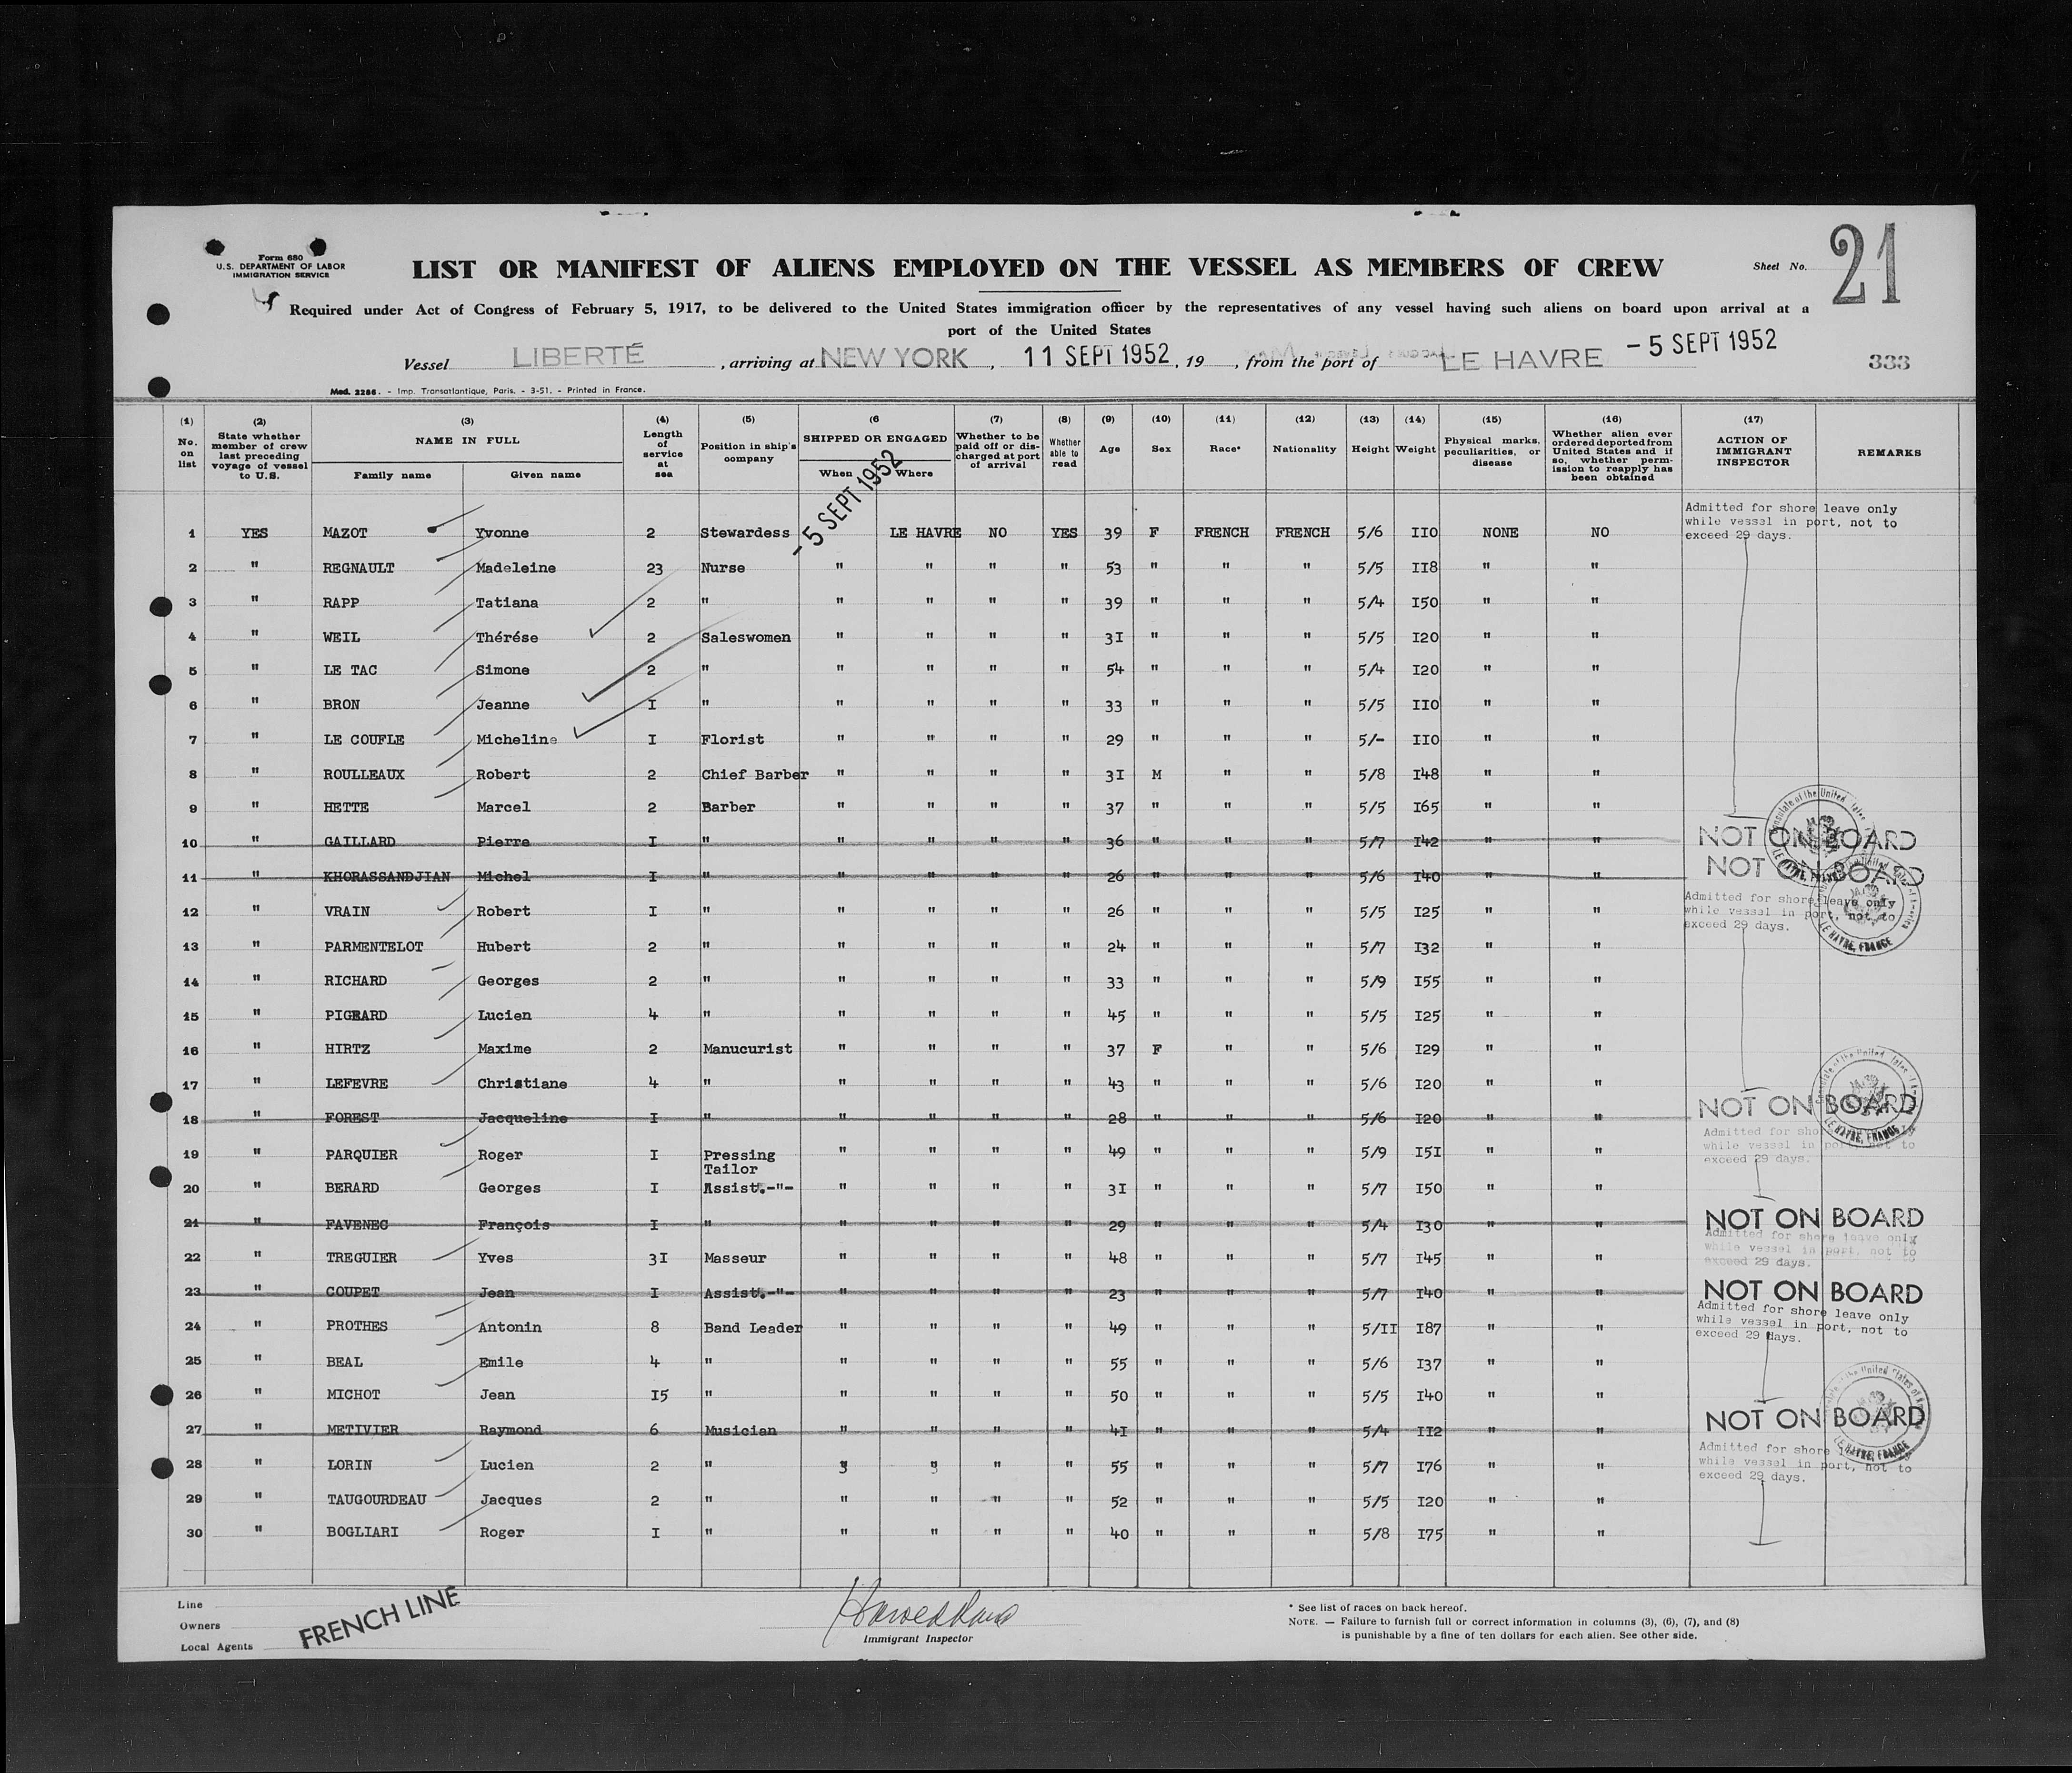 Form 680
U.S. DEPARTMENT OF LABOR
IMMIGRATION SERVICE
LIST OR MANIFEST OF ALIENS EMPLOYED ON THE VESSEL AS MEMBERS OF CREW
Sheet No. 21
Required under Act of Congress of February 5, 1917, to be delivered to the United States immigration officer by the representatives of any vessel having such aliens on board upon arrival at a
port of the United States
Vessel LIBERTÉ, arriving at NEW YORK, 11 SEPT 1952, 19, from the port of LE HAVRE - 5 SEPT 1952
333
Mod. 2286. - Imp. Transatlantique, Paris. - 3-51. - Printed in France.
(1) No. on list (2) State whether member of crew last preceding voyage of vessel to U.S. (3) NAME IN FULL Family name Given name (4) Length of service at sea (5) Position in ship's company (6 SHIPPED OR ENGAGED When Where (7) Whether to be paid off or discharged at port of arrival (8) Whether able to read (9) Age (10) Sex (11) Race* (12) Nationality (13) Height (14) Weight (15) Physical marks, peculiarities, or disease (16) Whether alien ever ordered deported from United States and if so, whether permission to reapply has been obtained (17) ACTION OF IMMIGRANT INSPECTOR REMARKS
- 5 SEPT 1952
Admitted for shore leave only
while vessel in port, not to
exceed 29 days.
1 YES MAZOT Yvonne 2 Stewardess LE HAVRE NO YES 39 F FRENCH FRENCH 5/6 IIO NONE NO
2 " REGNAULT Madeleine 23 Nurse " " " " 53 " " " 5/5 II8 " "
3 " RAPP Tatiana 2 " " " " " 39 " " " 5/4 I50 " "
4 " WEIL Thérése 2 Saleswomen " " " " 3I " " " 5/5 I20 " "
5 " LE TAC Simone 2 " " " " " 54 " " " 5/4 I20 " "
6 " BRON Jeanne I " " " " " 33 " " " 5/5 IIO " "
7 " LE COUFLE Micheline I Florist " " " " 29 " " " 5/- IIO " "
8 " ROULLEAUX Robert 2 Chief Barber " " " " 3I M " " 5/8 I48 " "
9 " HETTE Marcel 2 Barber " " " " 37 " " " 5/5 I65 " "
10 " GAILLARD Pierre I " " " " " 36 " " " 5/7 I42 " " NOT ON BOARD
11 " KHORASSANDJIAN Michel I " " " " " 26 " " " 5/6 I40 " " NOT ON BOARD
Admitted for shore leave only
while vessel in port, not to
exceed 29 days.
12 " VRAIN Robert I " " " " " 26 " " " 5/5 I25 " "
13 " PARMENTELOT Hubert 2 " " " " " 24 " " " 5/7 I32 " "
LE HAVRE, FRANCE
14 " RICHARD Georges 2 " " " " " 33 " " " 5/9 I55 " "
15 " PIGEARD Lucien 4 " " " " " 45 " " " 5/5 I25 " "
16 " HIRTZ Maxime 2 Manucurist " " " " 37 F " " 5/6 I29 " "
17 " LEFEVRE Christiane 4 " " " " " 43 " " " 5/6 I20 " "
18 " FOREST Jacqueline I " " " " " 28 " " " 5/6 I20 " " NOT ON BOARD
LE HAVRE, FRANCE
Admitted for
while vessel in port, not to
exceed 29 days.
19 " PARQUIER Roger I Pressing Tailor " " " " 49 " " " 5/9 I5I " "
20 " BERARD Georges I Assist.-"- " " " " 3I " " " 5/7 I50 " "
21 " FAVENEC François I " " " " " 29 " " " 5/4 I30 " " NOT ON BOARD
Admitted for shore leave only
while vessel in port, not to
exceed 29 days.
22 " TREGUIER Yves 3I Masseur " " " " 48 " " " 5/7 I45 " "
23 " COUPET Jean I Assist.-"- " " " " 23 " " " 5/7 I40 " " NOT ON BOARD
Admitted for shore leave only
while vessel in port, not to
exceed 29 days.
24 " PROTHES Antonin 8 Band Leader " " " " 49 " " " 5/II I87 " "
25 " BEAL Emile 4 " " " " " 55 " " " 5/6 I37 " "
26 " MICHOT Jean I5 " " " " " 50 " " " 5/5 I40 " "
27 " METIVIER Raymond 6 Musician " " " " 4I " " " 5/4 II2 " " NOT ON BOARD
LE HAVRE, FRANCE
Admitted for shore
while vessel in port, not to
exceed 29 days.
28 " LORIN Lucien 2 " " " " " 55 " " " 5/7 I76 " "
29 " TAUGOURDEAU Jacques 2 " " " " " 52 " " " 5/5 I20 " "
30 " BOGLIARI Roger I " " " " " 40 " " " 5/8 I75 " "
Line
Owners
Local Agents
FRENCH LINE
Immigrant Inspector
* See list of races on back hereof.
NOTE. — Failure to furnish full or correct information in columns (3), (6), (7), and (8)
is punishable by a fine of ten dollars for each alien. See other side.